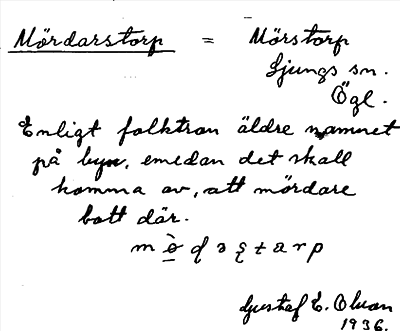 Mördarstorp = Mörstorp
Ljungs sn.
Ögl.
Enligt folktron äldre namnet
på byn, emedan det skall
komma av, att mördare
bott där.
Gustaf E. Olson
1936.